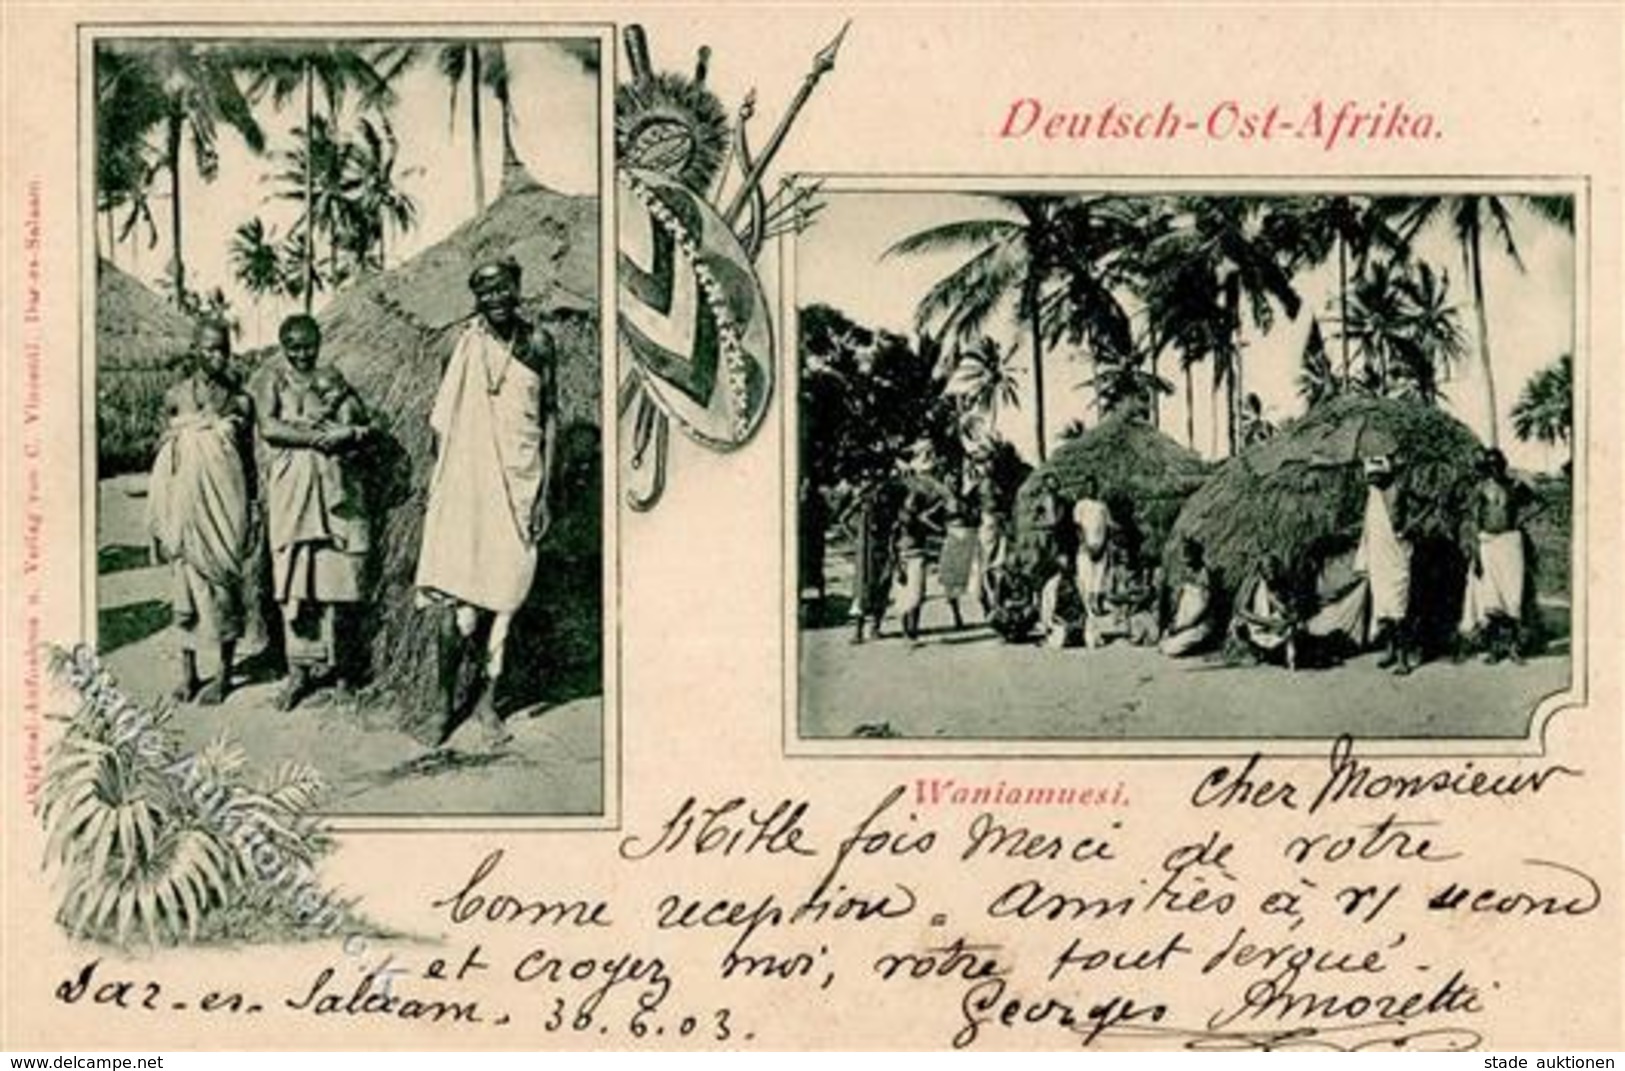 Deutsch-Ost-Afrika.
Original-Aufnahme u. Verlag von C. Vincenti, Dar-es-Salaam.
Waniamuesi.
cher Monsieur
Mille fois Merci de votre
bonne reception. Amitiés à, v/ second
et croyez moi, votre tout
Georges Amoretti
Dar-es-Salaam. 30.6.03.
Stade Auktionen
www.delcampe.net
stade auktionen